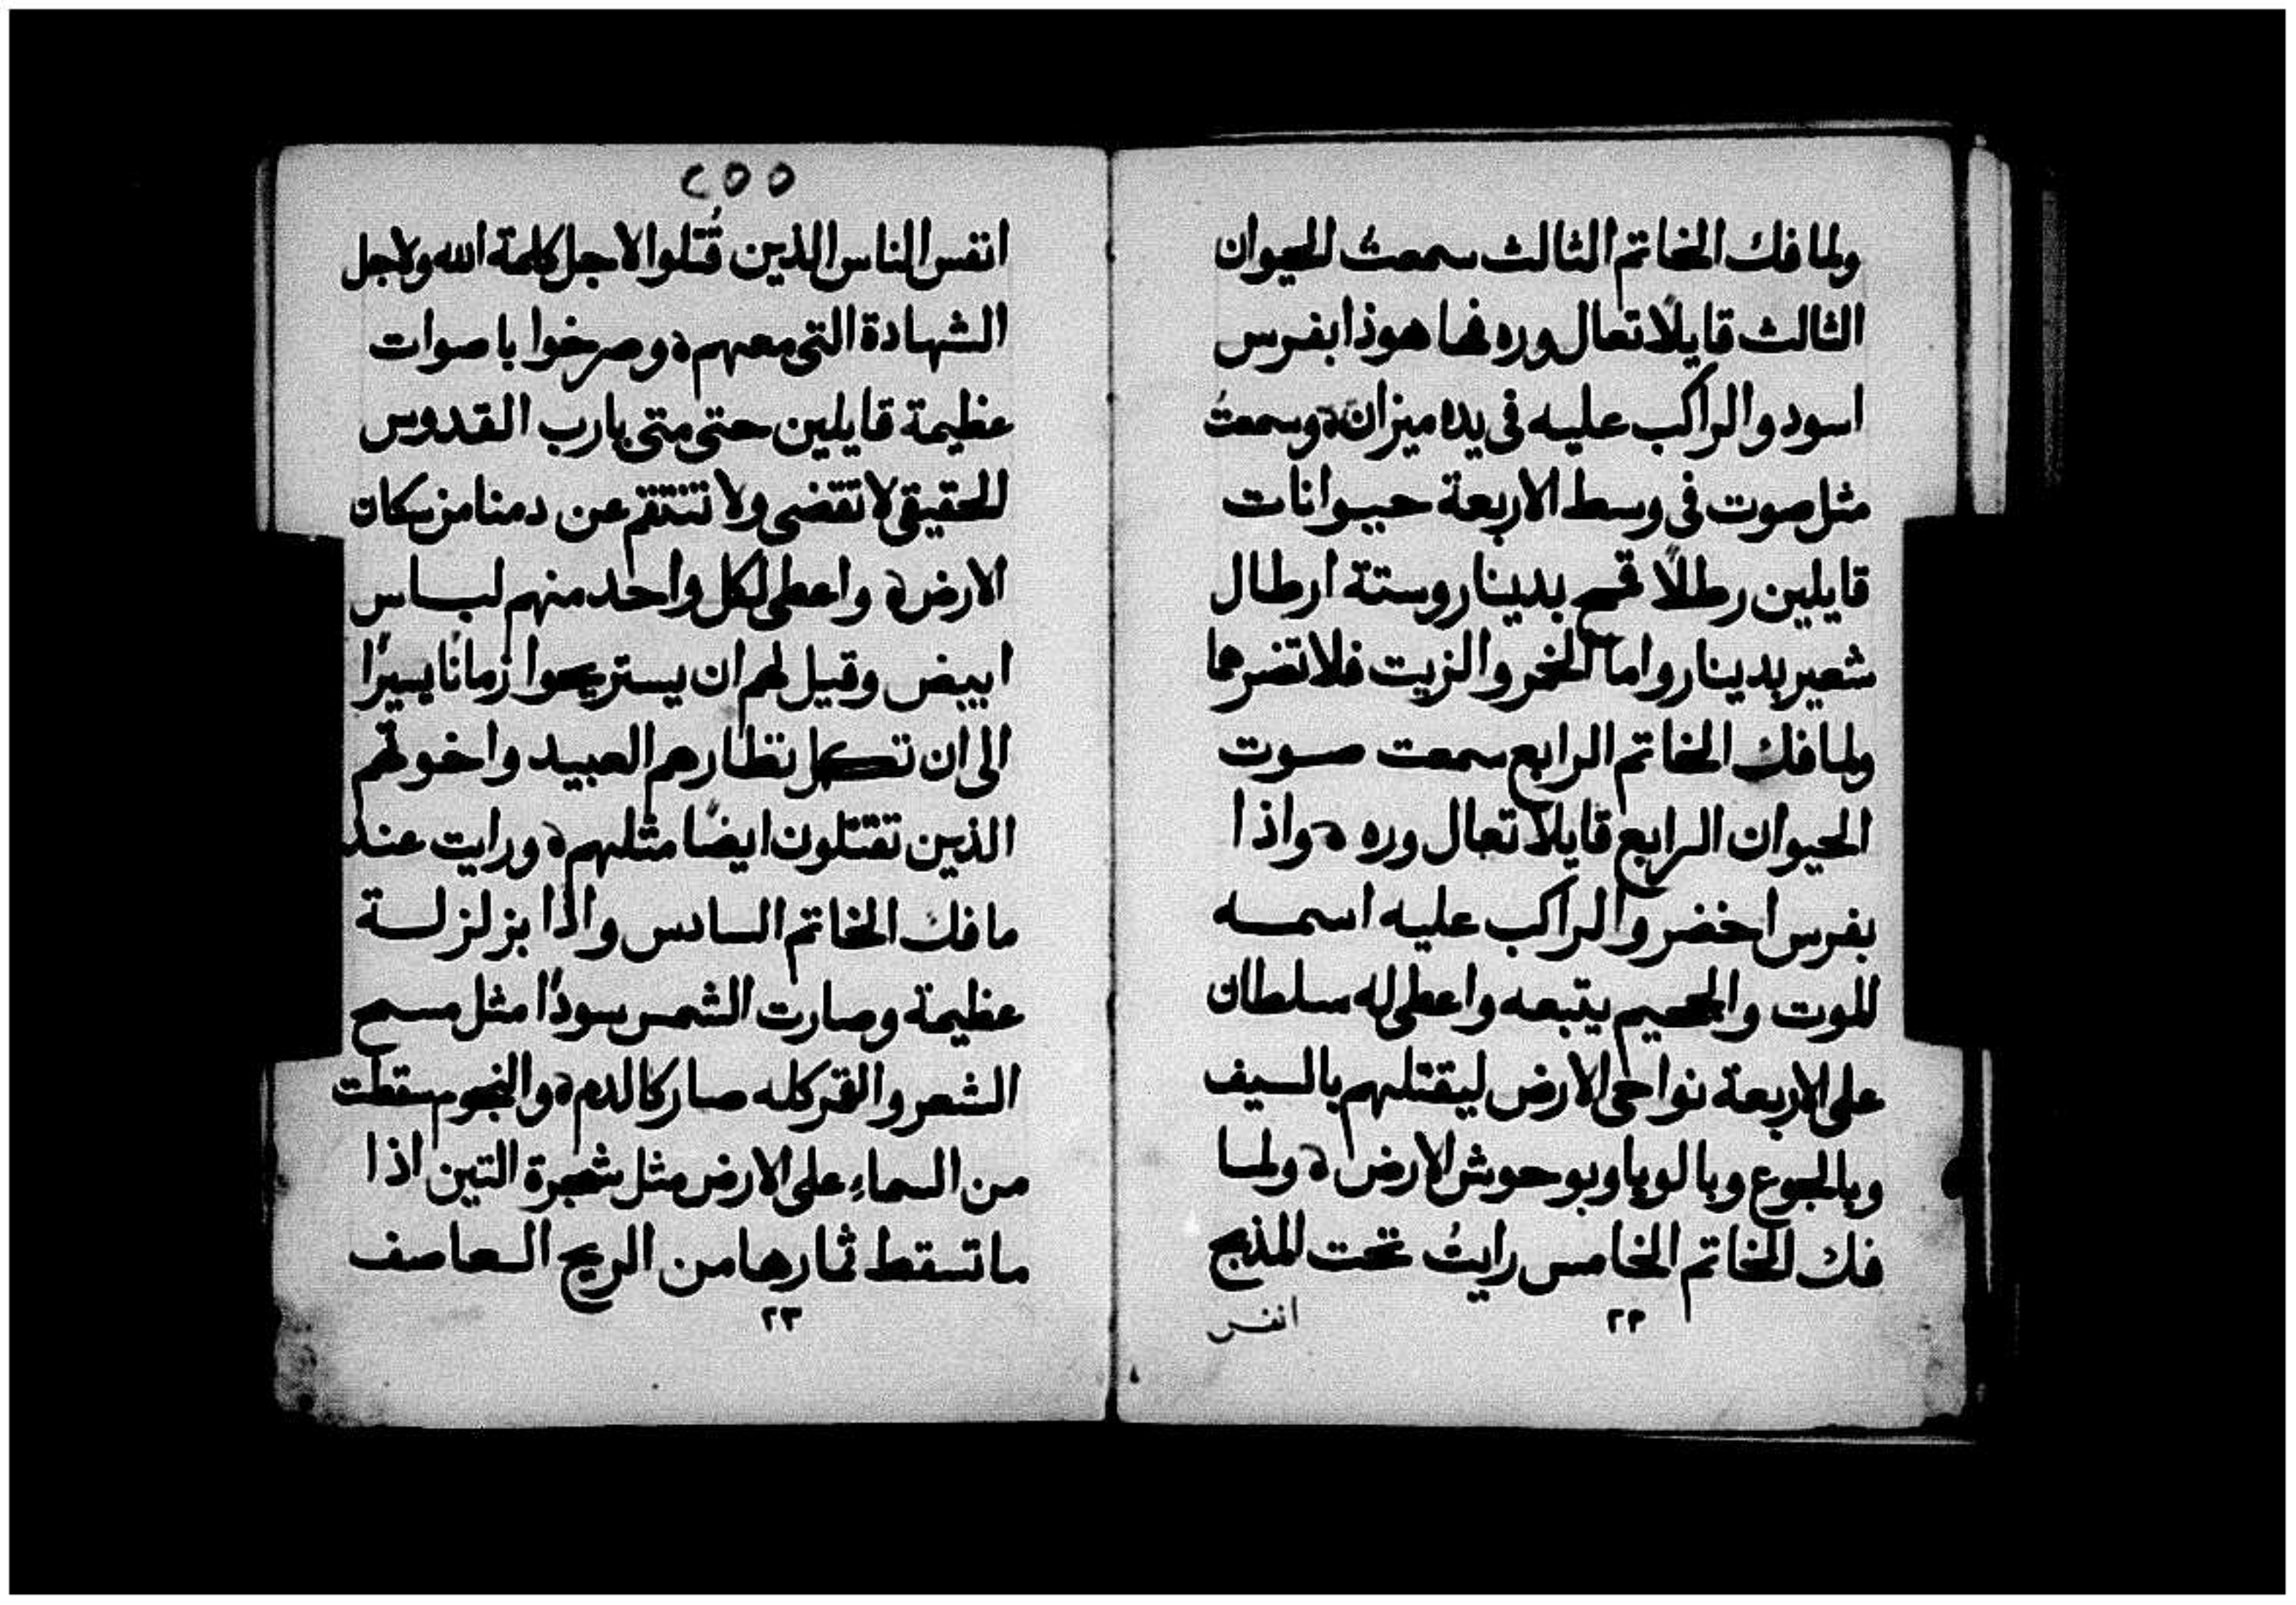 ولما فك الخاتم الثالث سمعتُ الحيوان
الثالث قايلًا تعال وره فها هوذا بفرس
اسود والراكب عليه في يده ميزان ة وسمعتُ
مثل صوت في وسط الاربعة حيوانات
قايلين رطلًا قمح بدينار وستة ارطال
شعير بدينار واما الخمر والزيت فلا تضرهما
ولما فك الخاتم الرابع سمعت صوت
الحيوان الرابع قايلًا تعال وره ة واذا
بفرس اخضر والراكب عليه اسمه
الموت والجحيم يتبعه واعطى له سلطان
على الاربعة نواحى الارض ليقتلهم بالسيف
وبالجوع وبالوبا وبوحوش الارض ة ولما
فك الخاتم الخامس رايتُ تحت المذبح
٢٢
انفس
٢٥٥
انفس الناس الذين قُتلوا لاجل كلمة الله ولاجل
الشهادة التي معهم ة وصرخوا باصوات
عظيمة قايلين حتى متى يارب القدوس
الحقيقي لا تقضى ولا تنتقم عن دمنا من سكان
الارض ة واعطى لكل واحد منهم لباس
ابيض وقيل لهم ان يستريحوا زمانًا يسيرًا
الى ان تكمل نظارهم العبيد واخوتهم
الذين تقتلون ايضًا مثلهم ة ورايت عند
ما فك الخاتم السادس واذا بزلزلة
عظيمة وصارت الشمس سودًا مثل مسح
الشعر والقمر كله صار كالدم ة والنجوم سقطت
من السماءِ على الارض مثل شجرة التين اذا
ما تسقط ثمارها من الريح العاصف
٢٣